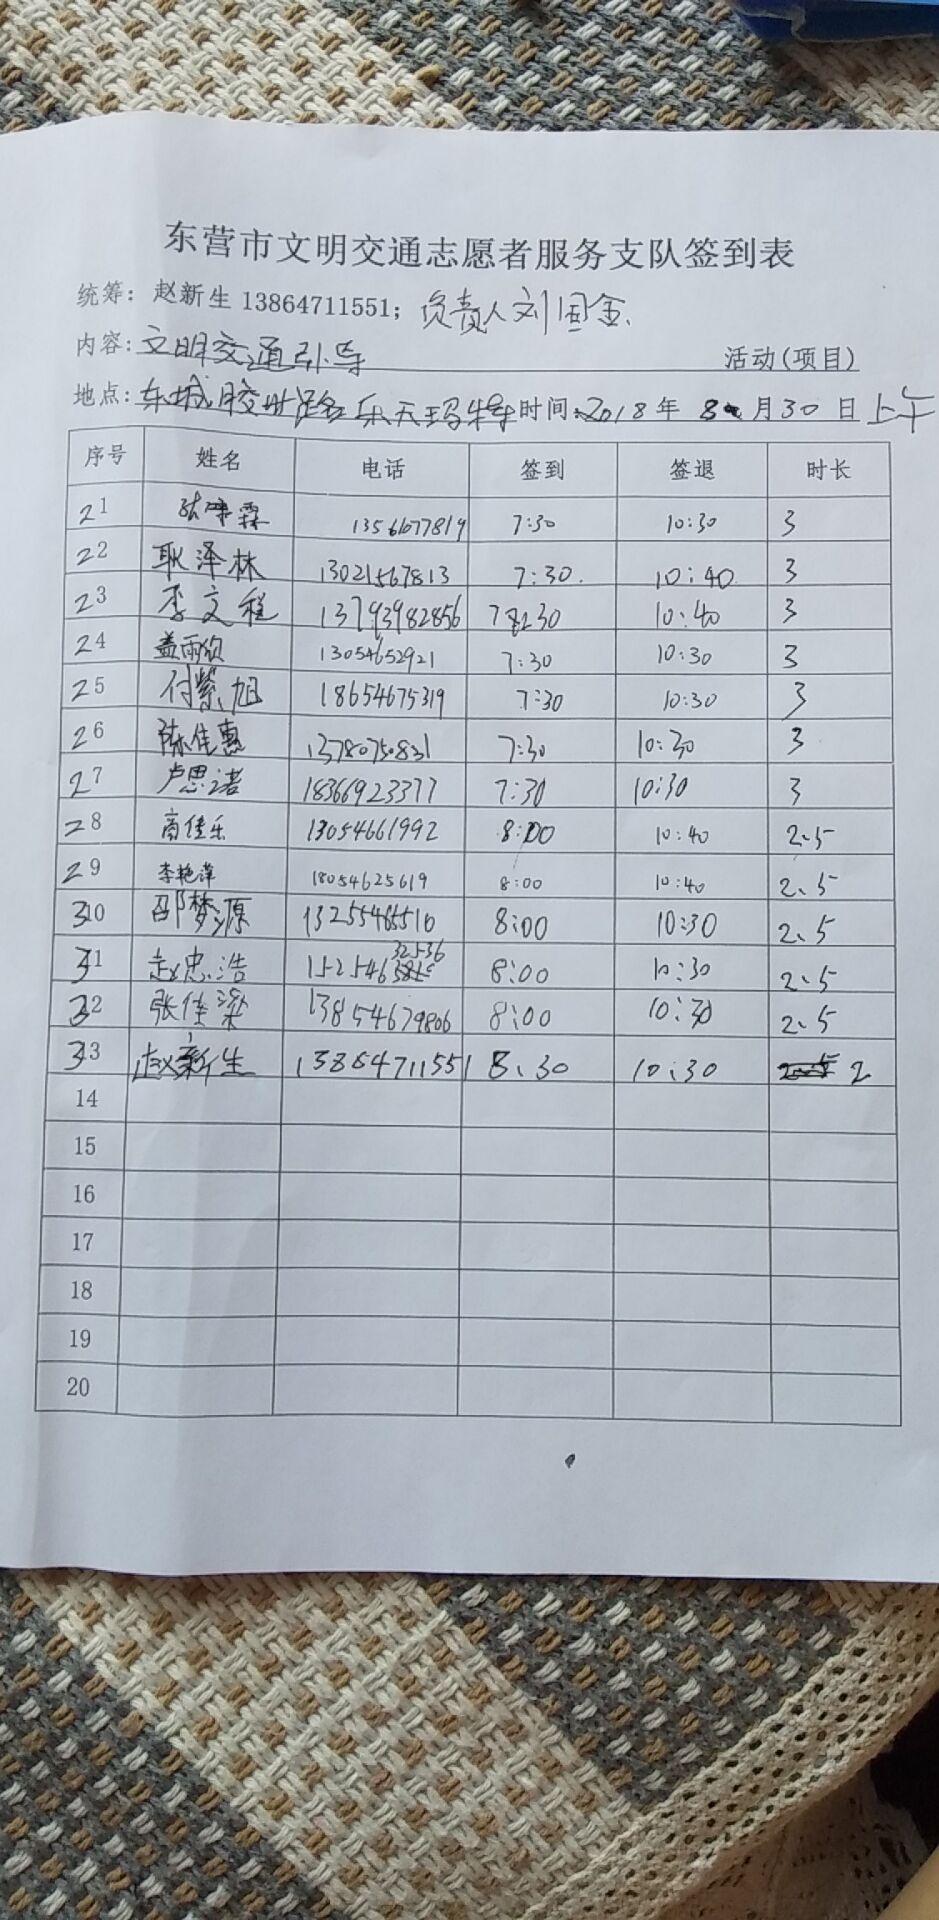 东营市文明交通志愿者服务支队签到表
统筹: 赵新生 13864711551; 负责人刘国金
内容: 文明交通引导 活动(项目)
地点: 东城胶州路乐天玛特 时间: 2018年 8 月 30 日 上午
序号 姓名 电话 签到 签退 时长
21 张 霖 1356677819 7:30 10:30 3
22 耿泽林 13021567813 7:30 10:40 3
23 李文程 13793982856 7:30 10:40 3
24 盖雨欣 13054652921 7:30 10:30 3
25 付紫旭 18654675319 7:30 10:30 3
26 陈佳惠 13780750831 7:30 10:30 3
27 卢思诺 18366923377 7:30 10:30 3
28 商佳乐 13054661992 8:00 10:40 2.5
29 李艳萍 18054625619 8:00 10:40 2.5
310 邵梦源 13255465510 8:00 10:30 2.5
31 赵忠浩 15254632536 8:00 10:30 2.5
32 张佳梁 13854679806 8:00 10:30 2.5
33 赵新生 13864711551 8:30 10:30 2
14
15
16
17
18
19
20